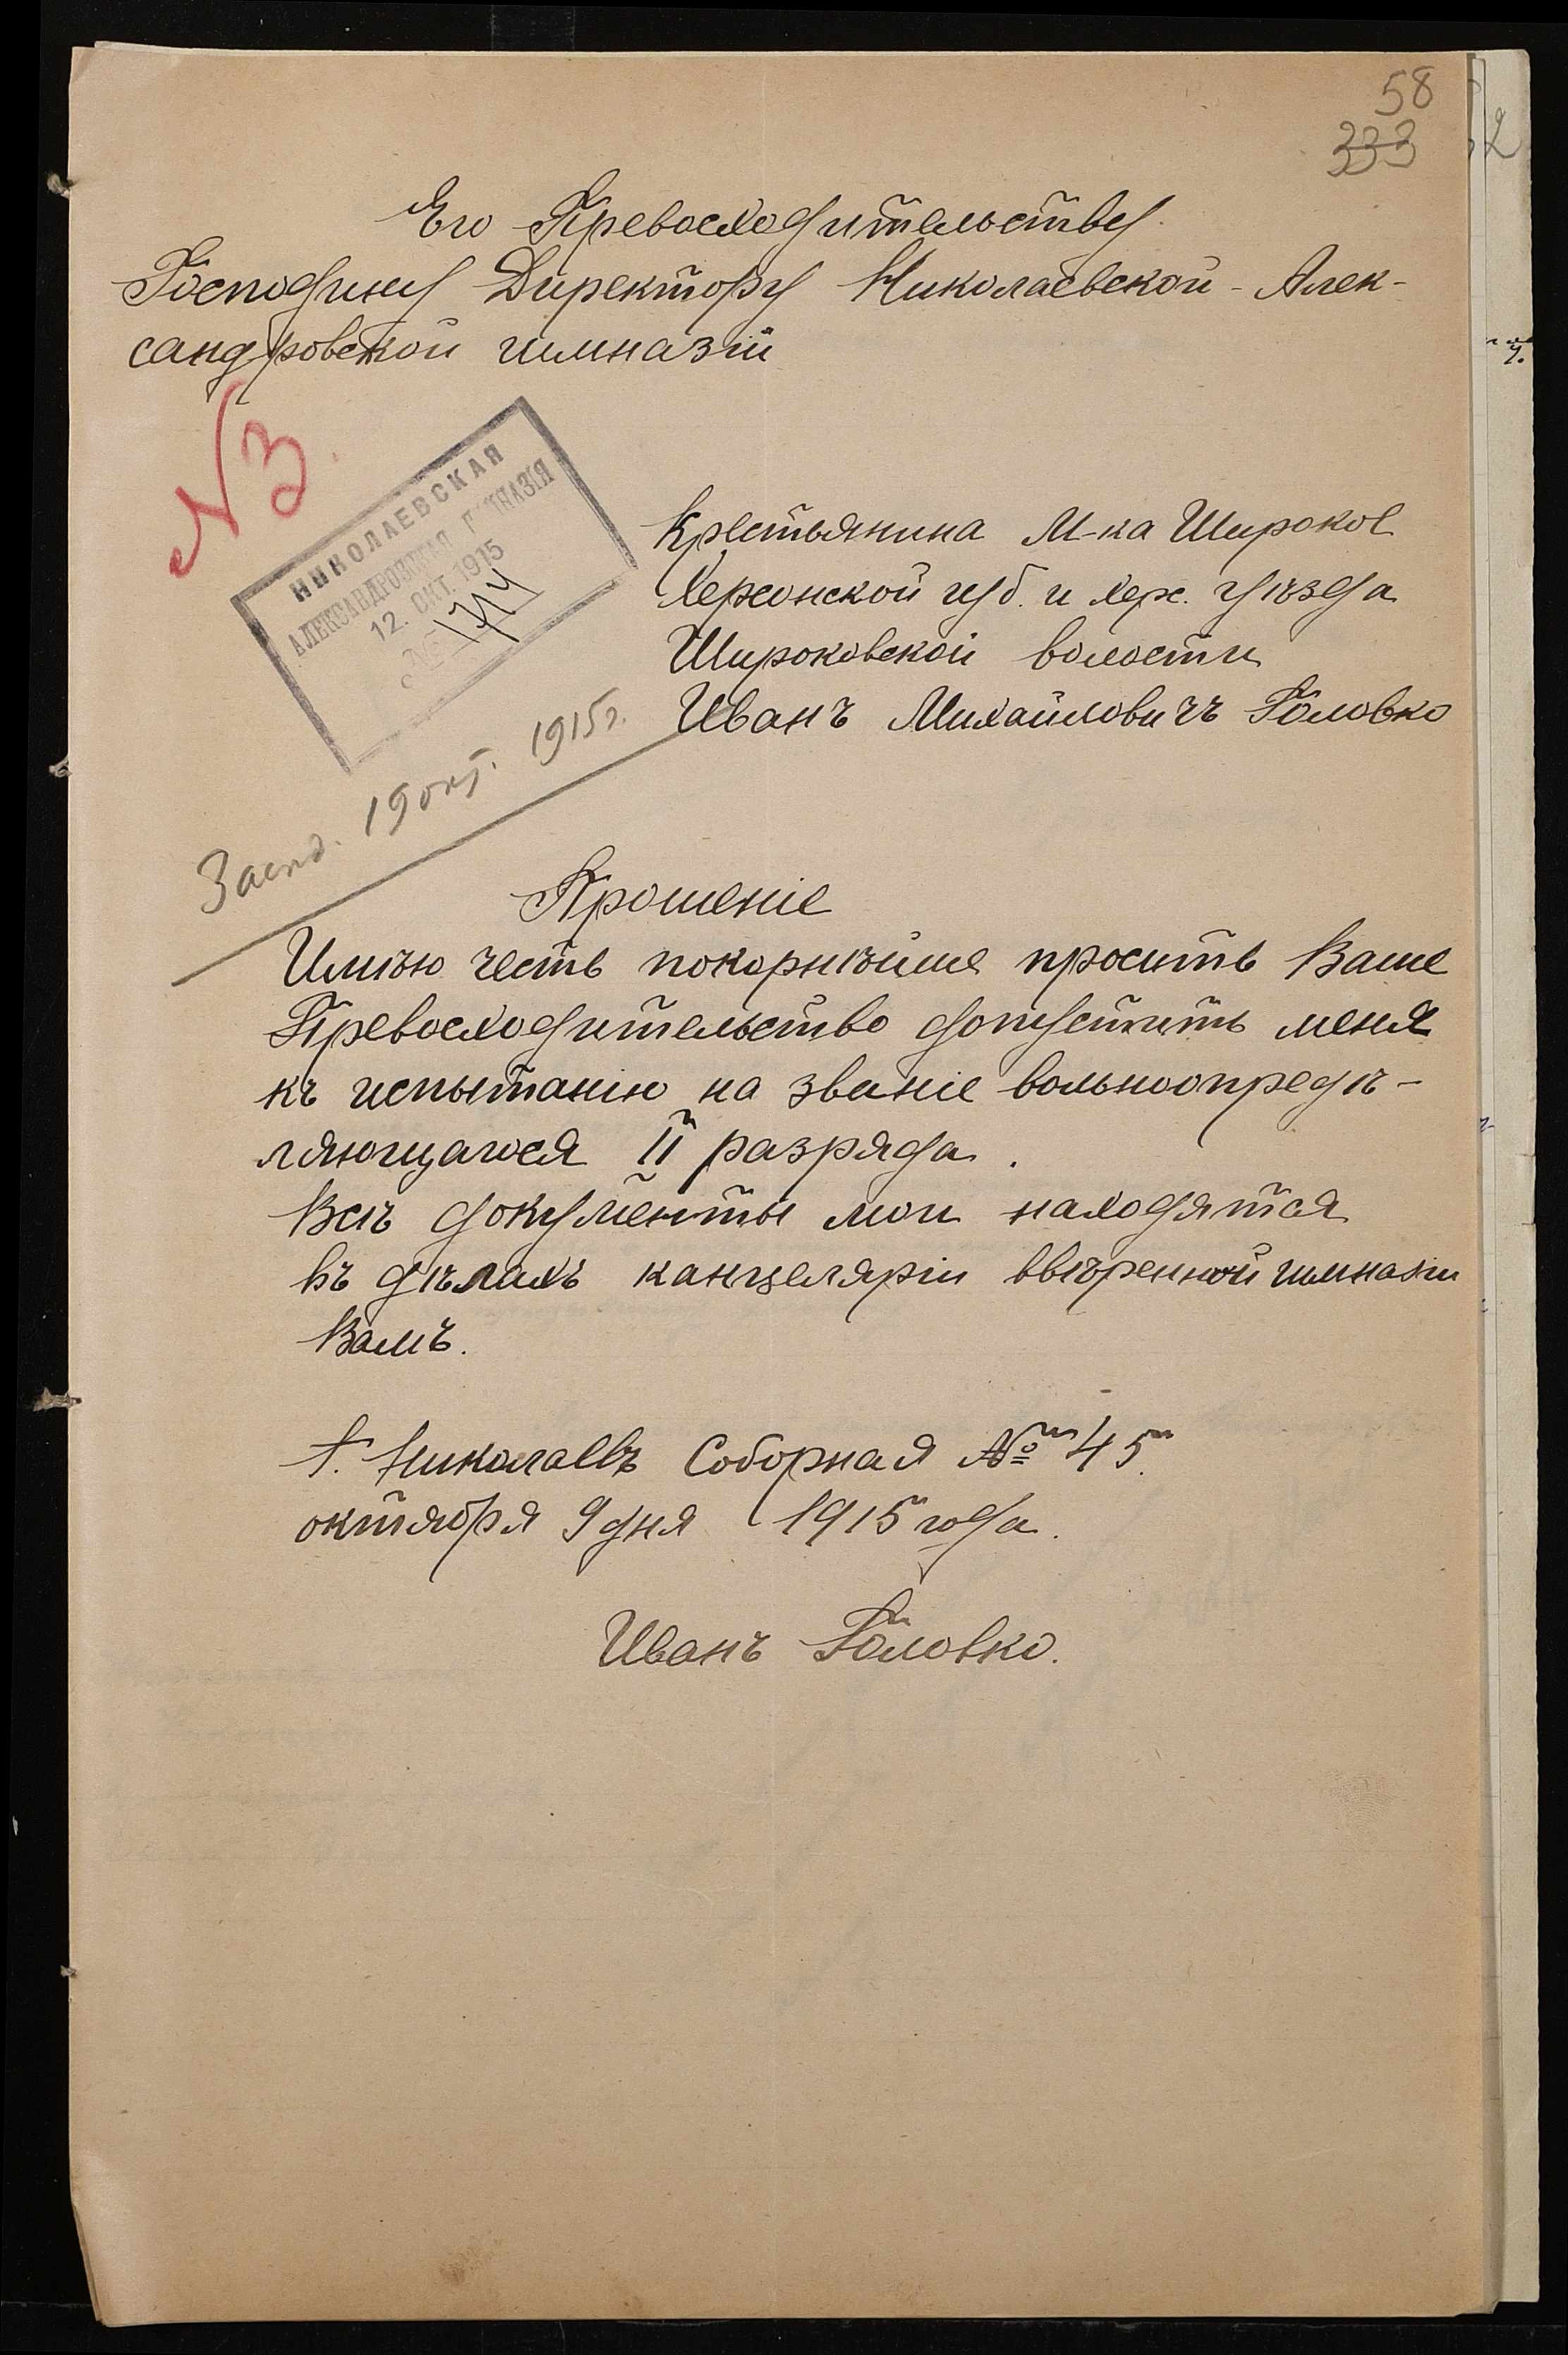 58
333
Его Превосходительству
Господину Директору Николаевской-Алек-
сандровской гимназіи
№3
НИКОЛАЕВСКАЯ
АЛЕКСАНДРОВСКАЯ ГИМНАЗІЯ
12. ОКТ. 1915
№ 1714
Крестьянина М-ка Широкое
Херсонской губ. и Херс. уѣзда
Широковской волости
Иванъ Михайловичъ Головко
19 окт. 1915г.
Прошеніе
Имѣю честь покорнѣйше просить Ваше
Превосходительство допустить меня
къ испытанію на званіе вольноопредѣ-
ляющагося II разряда.
Всѣ документы мои находятся
въ дѣлахъ канцеляріи ввѣренной гимназіи
Вамъ.
Г. Николаевъ Соборная № 45.
октября 9 дня 1915 года.
Иванъ Головко.